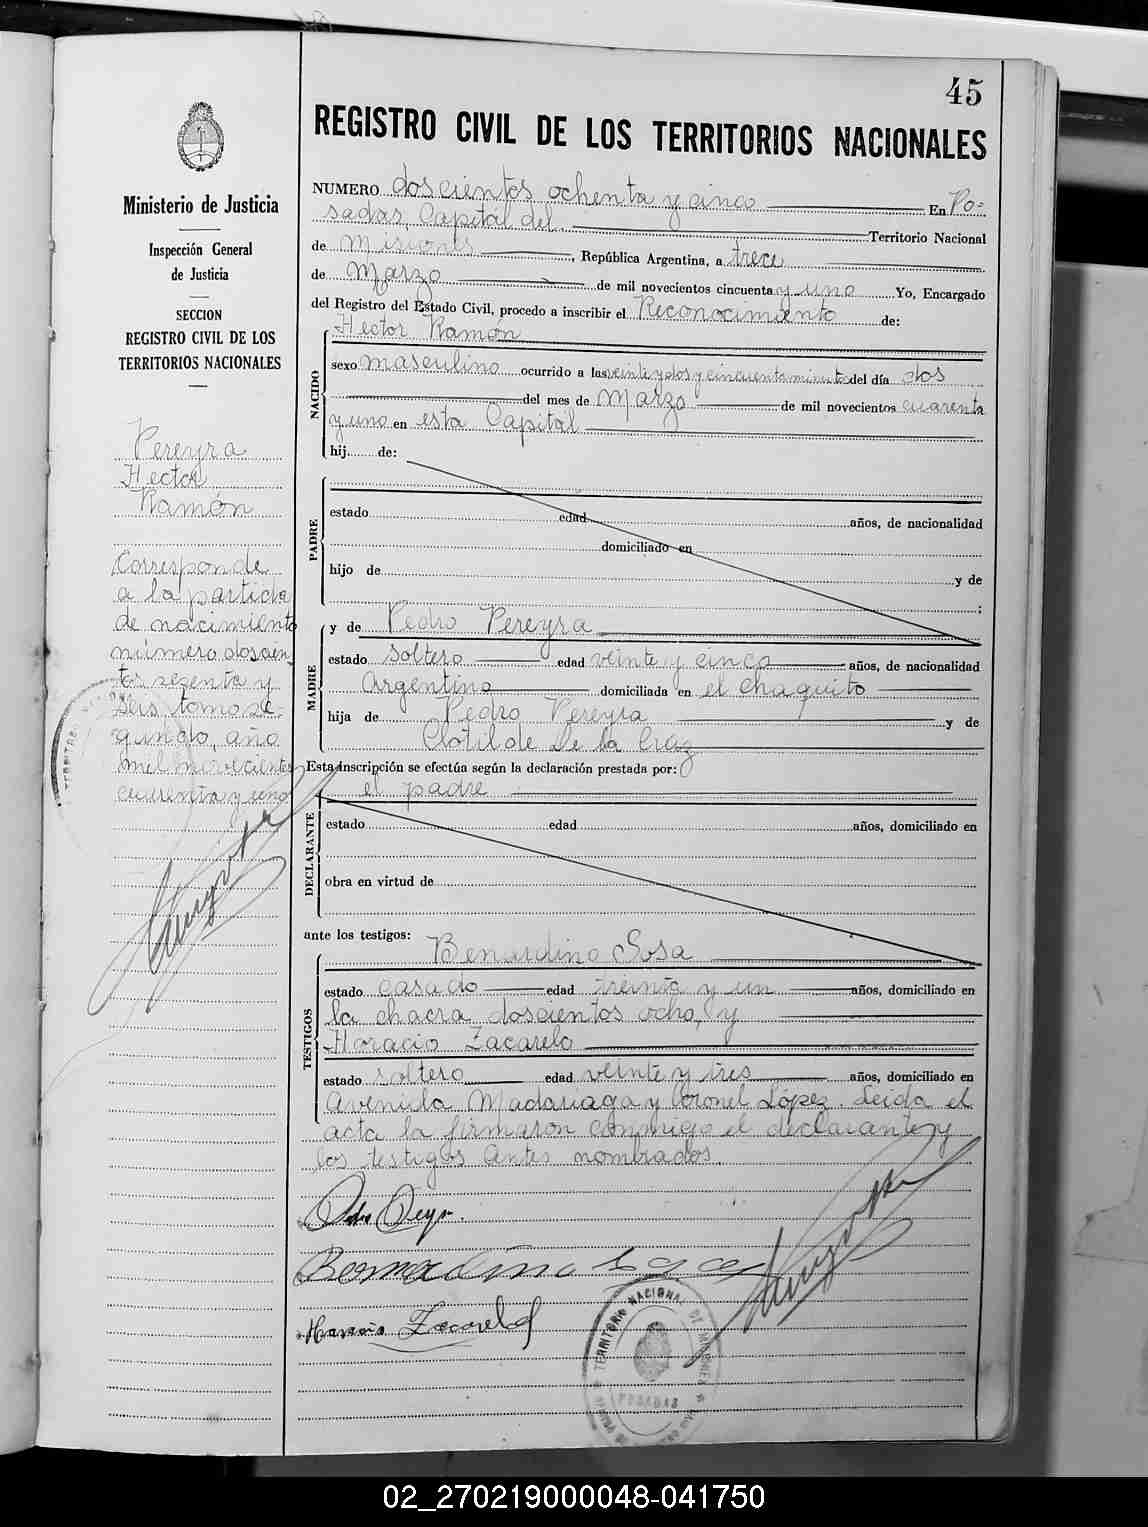 45
REGISTRO CIVIL DE LOS TERRITORIOS NACIONALES
Ministerio de Justicia
Inspección General
de Justicia
SECCION
REGISTRO CIVIL DE LOS
TERRITORIOS NACIONALES
Pereyra
Hector
Ramón
Corresponde
a la partida
de nacimiento
número doscien
tos sesenta y
seis, tomo se-
gundo, año
mil novecientos
cuarenta y uno
NUMERO doscientos ochenta y cinco En Po-
sadas, Capital del Territorio Nacional
de Misiones, República Argentina, a trece
de Marzo de mil novecientos cincuenta y uno Yo, Encargado
del Registro del Estado Civil, procedo a inscribir el Reconocimiento de:
Hector Ramón
NACIDO
sexo masculino ocurrido a las veinte y dos y cincuenta minutos del día dos
del mes de Marzo de mil novecientos cuarenta
y uno en esta Capital
hij de:
PADRE
estado edad años, de nacionalidad
domiciliado en
hijo de y de
:
MADRE
y de Pedro Pereyra
estado soltero edad veinte y cinco años, de nacionalidad
Argentina domiciliada en el chaquito
hija de Pedro Pereyra y de
Clotilde De la Cruz
Esta inscripción se efectúa según la declaración prestada por:
el padre
DECLARANTE
estado edad años, domiciliado en
obra en virtud de
ante los testigos:
Benardino Sosa
TESTIGOS
estado casado edad treinta y un años, domiciliado en
la chacra doscientos ocho, y
Horacio Zacarelo
estado soltero edad veinte y tres años, domiciliado en
Avenida Madariaga y Coronel López. Leida el
acta la firmaron conmigo el declarante y
los testigos antes nombrados.
Bernardino Sosa
Horacio Zacarelo
TERRITORIO NACIONAL DE MISIONES
POSADAS
02_270219000048-041750